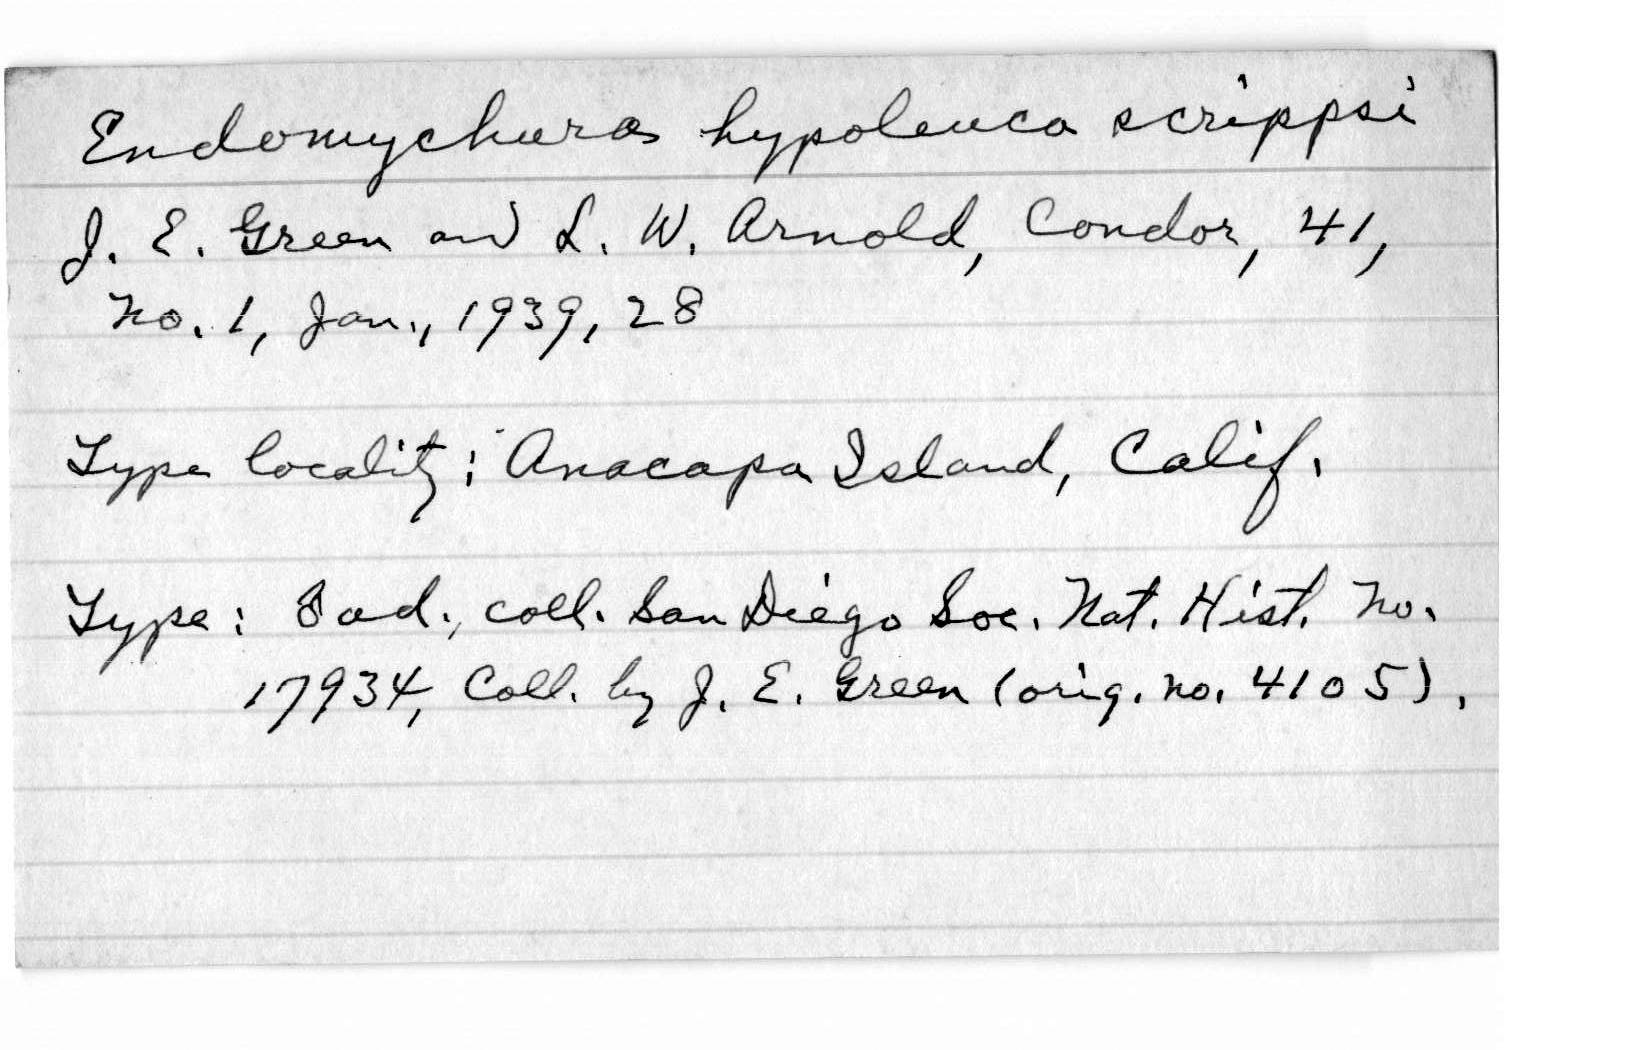 Endomychura hypoleuca scrippsi
J. E. Green and L. W. Arnold, Condor, 41,
no. 1, Jan., 1939, 28
Type locality: Anacapa Island, Calif.
Type: ad., coll. San Diego Soc. Nat. Hist. no.
17934, Coll. by J. E. Green (orig. no. 4105).